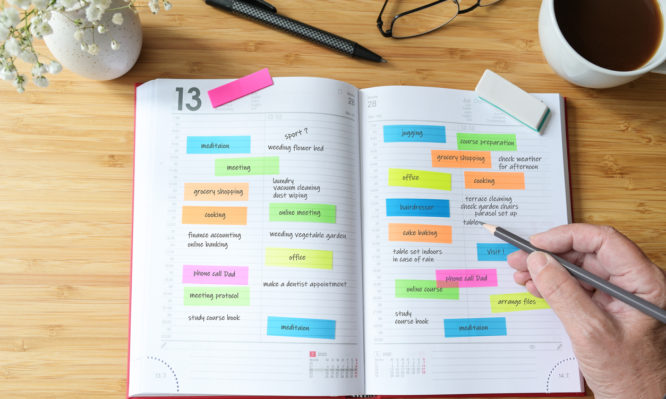 13
28
28
meditaion
sport ?
weeding flower bed
meeting
laundry
vacuum cleaning
dust wiping
grocery shopping
cooking
online meeting
finance accounting
online banking
weeding vegetable garden
office
phone call Dad
make a dentist appointment
meeting protocol
study course book
meditaion
jogging
course preparation
grocery shopping
check weather
for afternoon
office
cooking
hairdresser
terrace cleaning
check garden chairs
parasol set up
table
cake baking
table set indoors
in case of rain
Visit !
phone call Dad
online course
arrange files
study
course book
meditaion